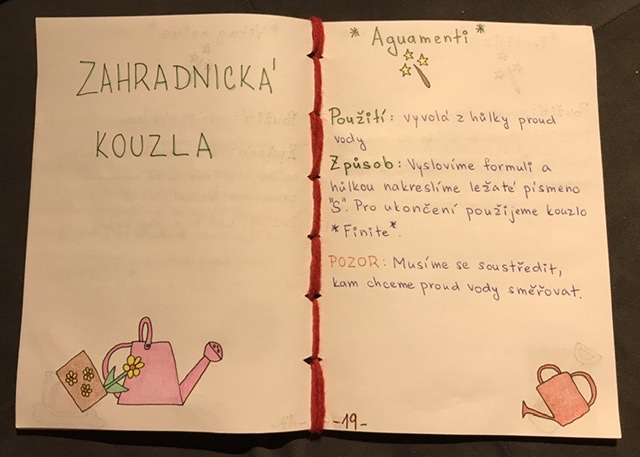 ZAHRADNICKÁ
KOUZLA
* Aguamenti *
Použití: vyvolá z hůlky proud
vody
Způsob: Vyslovíme formuli a
hůlkou nakreslíme ležaté písmeno
"S". Pro ukončení použijeme kouzlo
*Finite*.
POZOR: Musíme se soustředit,
kam chceme proud vody směřovat.
-19-